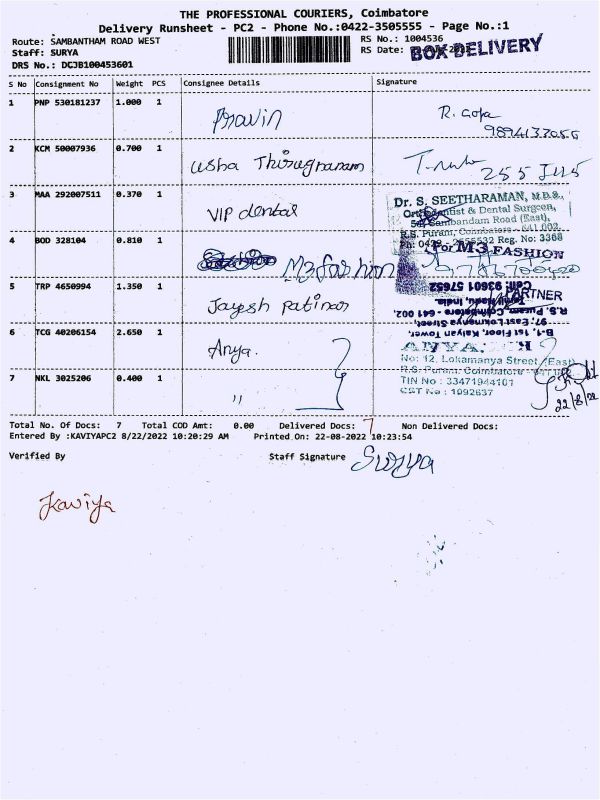 THE PROFESSIONAL COURIERS, Coimbatore
Delivery Runsheet - PC2 - Phone No.:0422-3505555 - Page No.:1
Route: SAMBANTHAM ROAD WEST RS No.: 1004536
Staff: SURYA RS Date: BOX DELIVERY
DRS No.: DCJB100453601
S No Consignment No Weight PCS Consignee Details Signature
1 PNP 530181237 1.000 1 Pravin R. Gopa
2 KCM 50007936 0.700 1 Usha Thirugnanam
3 MAA 292007511 0.370 1 VIP dental
Dr. S. SEETHARAMAN, M.D.S.,
Orthodontist & Dental Surgeon,
Sambandam Road (East),
R.S. Puram, Coimbatore - 641 002.
Reg. No: 3368
4 BOD 328104 0.810 1 M3 fashion For M3 FASHION
PARTNER
5 TRP 4650994 1.350 1 Jayesh
Cell: 93601 57652
Tamil Nadu, India.
R.S. Puram, Coimbatore - 641 002.
97, East Lokmanya Street,
B-1, 1st Floor, Kalyan Tower,
6 TCG 40206154 2.650 1 Anya. ANYA
No: 12, Lokamanya Street (East)
R.S. Puram, Coimbatore
TIN No : 33471944101
CST No : 1092637
7 NKL 3025206 0.400 1 "
22/8/22
Total No. Of Docs: 7 Total COD Amt: 0.00 Delivered Docs: 7 Non Delivered Docs:
Entered By :KAVIYAPC2 8/22/2022 10:20:29 AM Printed On: 22-08-2022 10:23:54
Verified By Staff Signature Surya
Kaviya